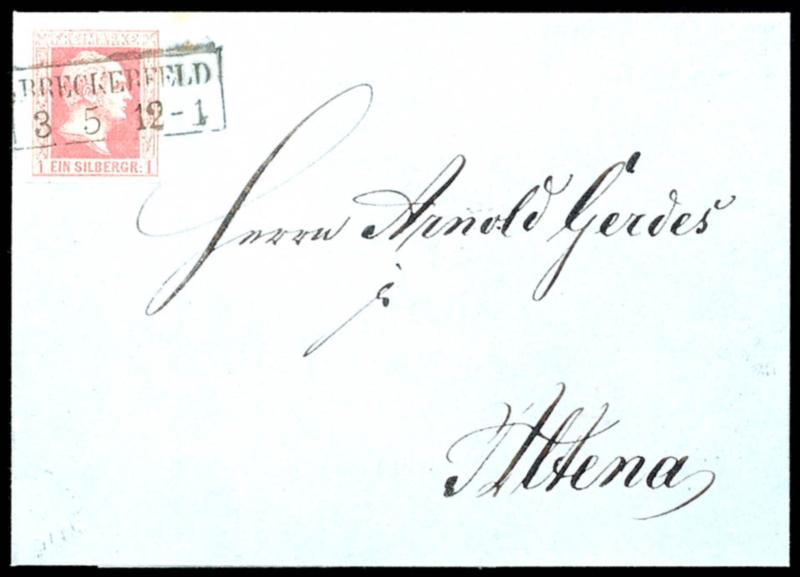 FREIMARKE
BRECKERFELD
3 5 12-1
1 EIN SILBERGR: 1
Herrn Arnold Gerdes
Altena